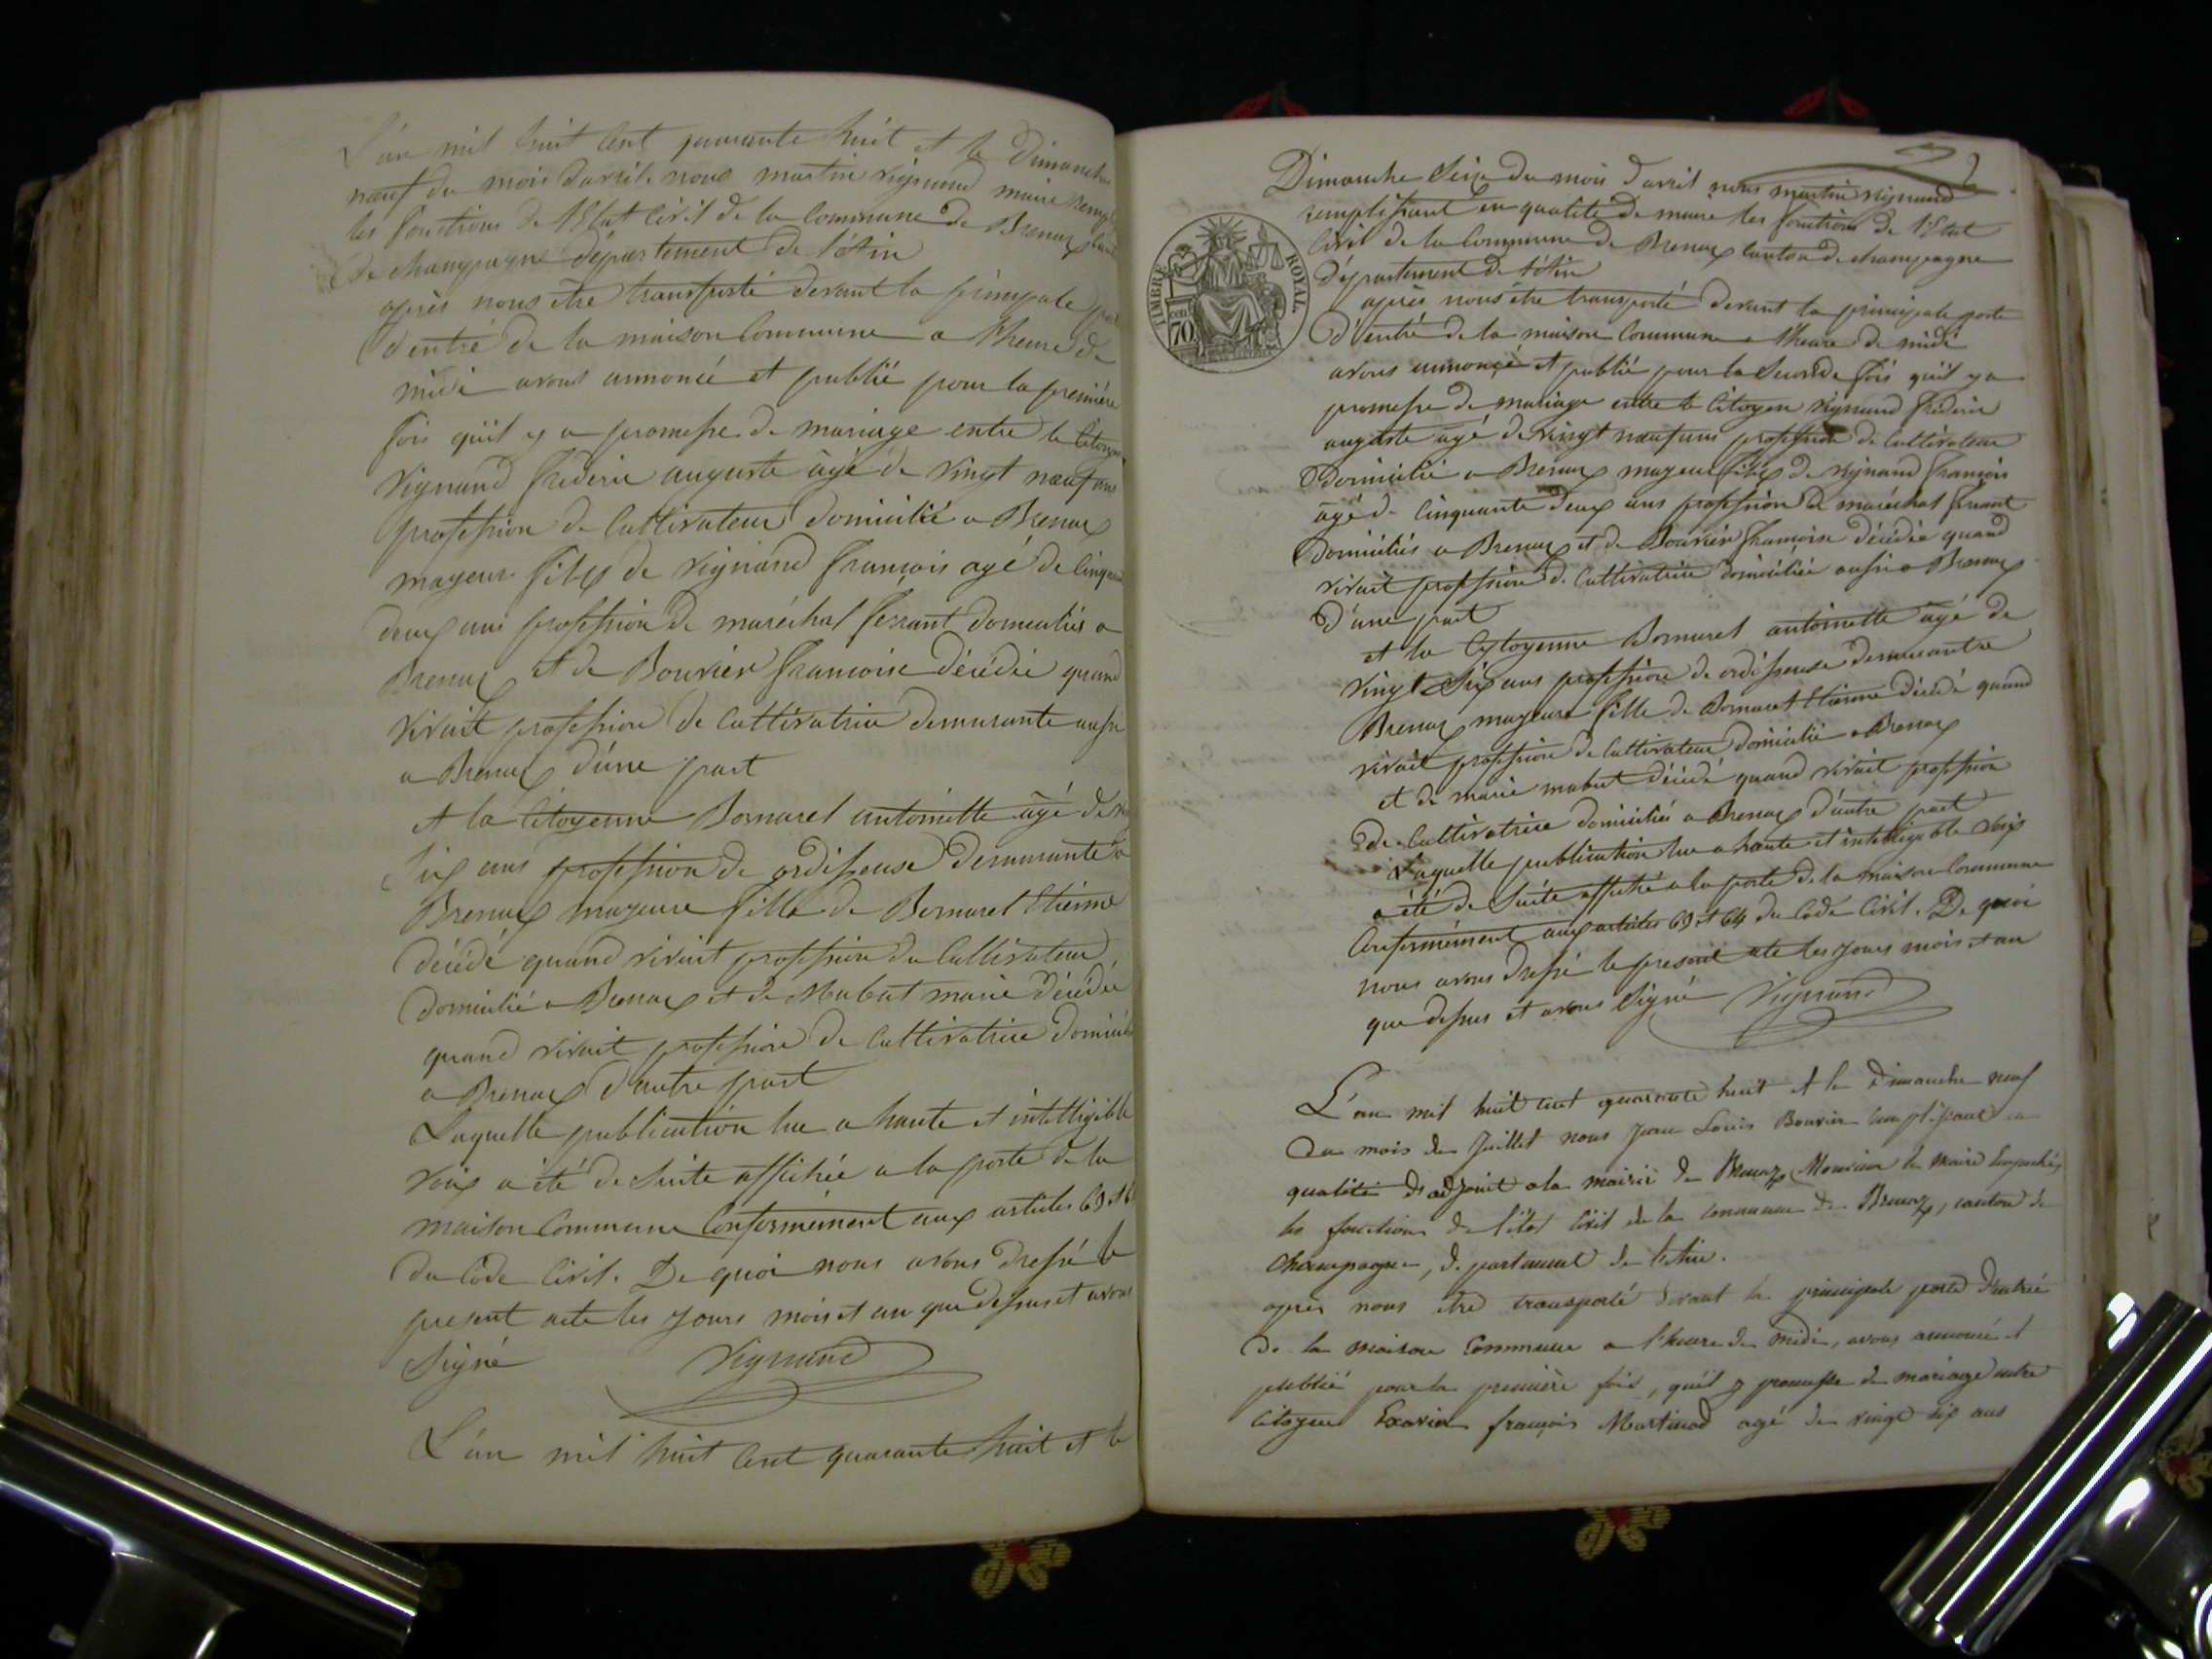 L'an mil huit Cent quarante huit et le Dimanche
neuf du mois davril. nous martin vignand maire
les fonctions de l'Etat Civil de la Commune de Brenaz
de champagne département de l'Ain
après nous être transporté devant la principale
d'entré de la maison Commune a l'heure de
midi avons annoncé et publié pour la première
fois quil y a promesse de mariage entre le Citoyen
vignand frederic auguste âgé de vingt neuf ans
profession de Cultivateur domicilié a Brenaz
mageur fils de vignand françois agé de
deux ans profession de maréchal ferrant domiciliés a
Brenaz et de Bouvier francoise décédée quand
vivait profession de Cultivatrice demurante aussi
a Brenaz d'une part
et la Citoyenne Bornarel antoinette âgé de
Six ans profession de ordisseuse demurante a
Brenaz mageure fille de Bornarel Etienne
décédé quand vivait profession de Cultivateur
domicilié a Brenaz et de Mabut marie décédée
quand vivait profession de Cultivatrice
a Brenaz d'autre part
Laquelle publication lue a haute et intelligible
voix a été de Suite affichée a la porte de la
maison Commune Conformément aux articles 63 et
du Code Civil. De quoi nous avons dressé le
present acte les jours mois et an que dessus et avons
Signé Vignand
L'an mil huit Cent quarante huit et le
2
Dimanche Seize du mois d'avril nous martin vignand
remplissant en qualité de maire les fonctions de l'Etat
Civil de la Commune de Brenaz Canton de champagne
département de l'Ain
TIMBRE ROYAL
70
après nous être transporté devant la principale porte
d'entré de la maison Commune a l'heure de midi
avons annoncé et publié pour la Seconde fois quil y a
promesse de mariage entre le Citoyen vignand frederic
auguste âgé de vingt neuf ans profession de Cultivateur
domicilié a Brenaz mageur fils de vignand françois
âgé de Cinquante deux ans profession de maréchal ferrant
domiciliés a Brenaz et de Bouvier françoise décédée quand
vivait profession de Cultivatrice domiciliée aussi a Brenaz
d'une part
et la Cytoyenne Bornarel antoinette âgé de
vingt Six ans profession de ordisseuse demurante a
Brenaz mageure fille de Bornarel Etienne décédé quand
vivait profession de Cultivateur domicilié a Brenaz
et de marie mabut décédé quand vivait profession
de Cultivatrice domiciliés a Brenaz d'autre part
Laquelle publication lue a haute et intelligible voix
a été de Suite affiché a la porte de la maison Commune
Conformément aux articles 63 et 64 du Code Civil. De quoi
nous avons dressé le present acte les jours mois et an
que dessus et avons Signé Vignand
L'an mil huit cent quarante huit et le Dimanche neuf
du mois de Juillet nous Jean Louis Bouvier remplissant en
qualité d'adjoint a la mairie de Brenaz, Monsieur le Maire empeché,
les fonctions de l'état Civil de la commune de Brenaz, canton de
Champagne, département de l'Ain.
après nous être transporté devant la principale porte d'entrée
de la maison Commune a l'heure de midi, avons annoncé et
publié pour la première fois, qu'il y promesse de mariage entre
Citoyen Exavier françois Martinod agé de vingt six ans